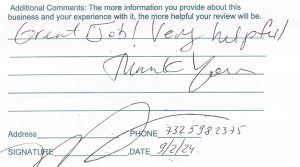 Additional Comments: The more information you provide about this
business and your experience with it, the more helpful your review will be.
Great Job! Very helpful
Thank You
Address PHONE 7325982375
SIGNATURE DATE 9/2/24